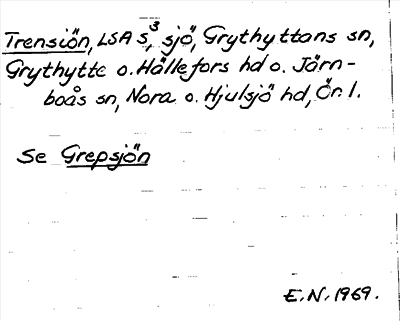 Trensiön, LSA S³, sjö, Grythyttans sn,
Grythytte o. Hällefors hd o. Järn-
boås sn, Nora o. Hjulsjö hd, Ör. l.
Se Grepsjön
E. N. 1969.